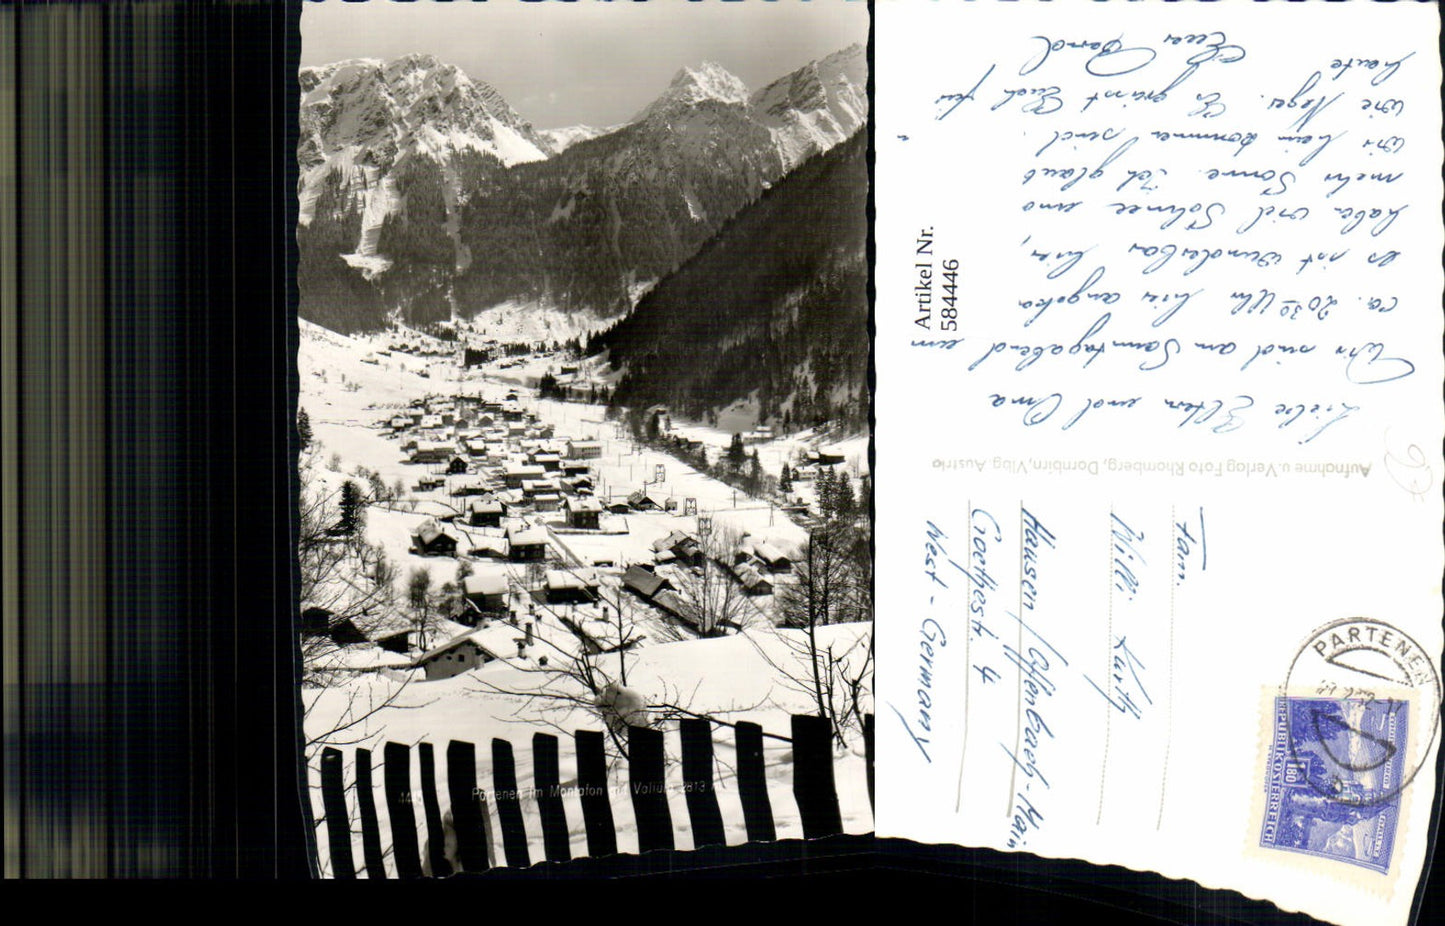 4445
Partenen im Montafon mit Vallüla 2813 m
Artikel Nr.
584446
Liebe Eltern und Oma
Wir sind am Samstagabend um
ca. 20³⁰ Uhr hier angeko
es ist wunderbar hier,
habe viel Schnee und
mehr Sonne. Ich glaub
wir heim kommen sind
wie Neger. Es grüsst Euch für
heute
Euer Bernd
Aufnahme u. Verlag Foto Rhomberg, Dornbirn, Vlbg. Austria
Fam.
Willi
Hausen / Offenbach-Main
Goethestr. 4
West-Germany
PARTENEN
REPUBLIK ÖSTERREICH
1.80